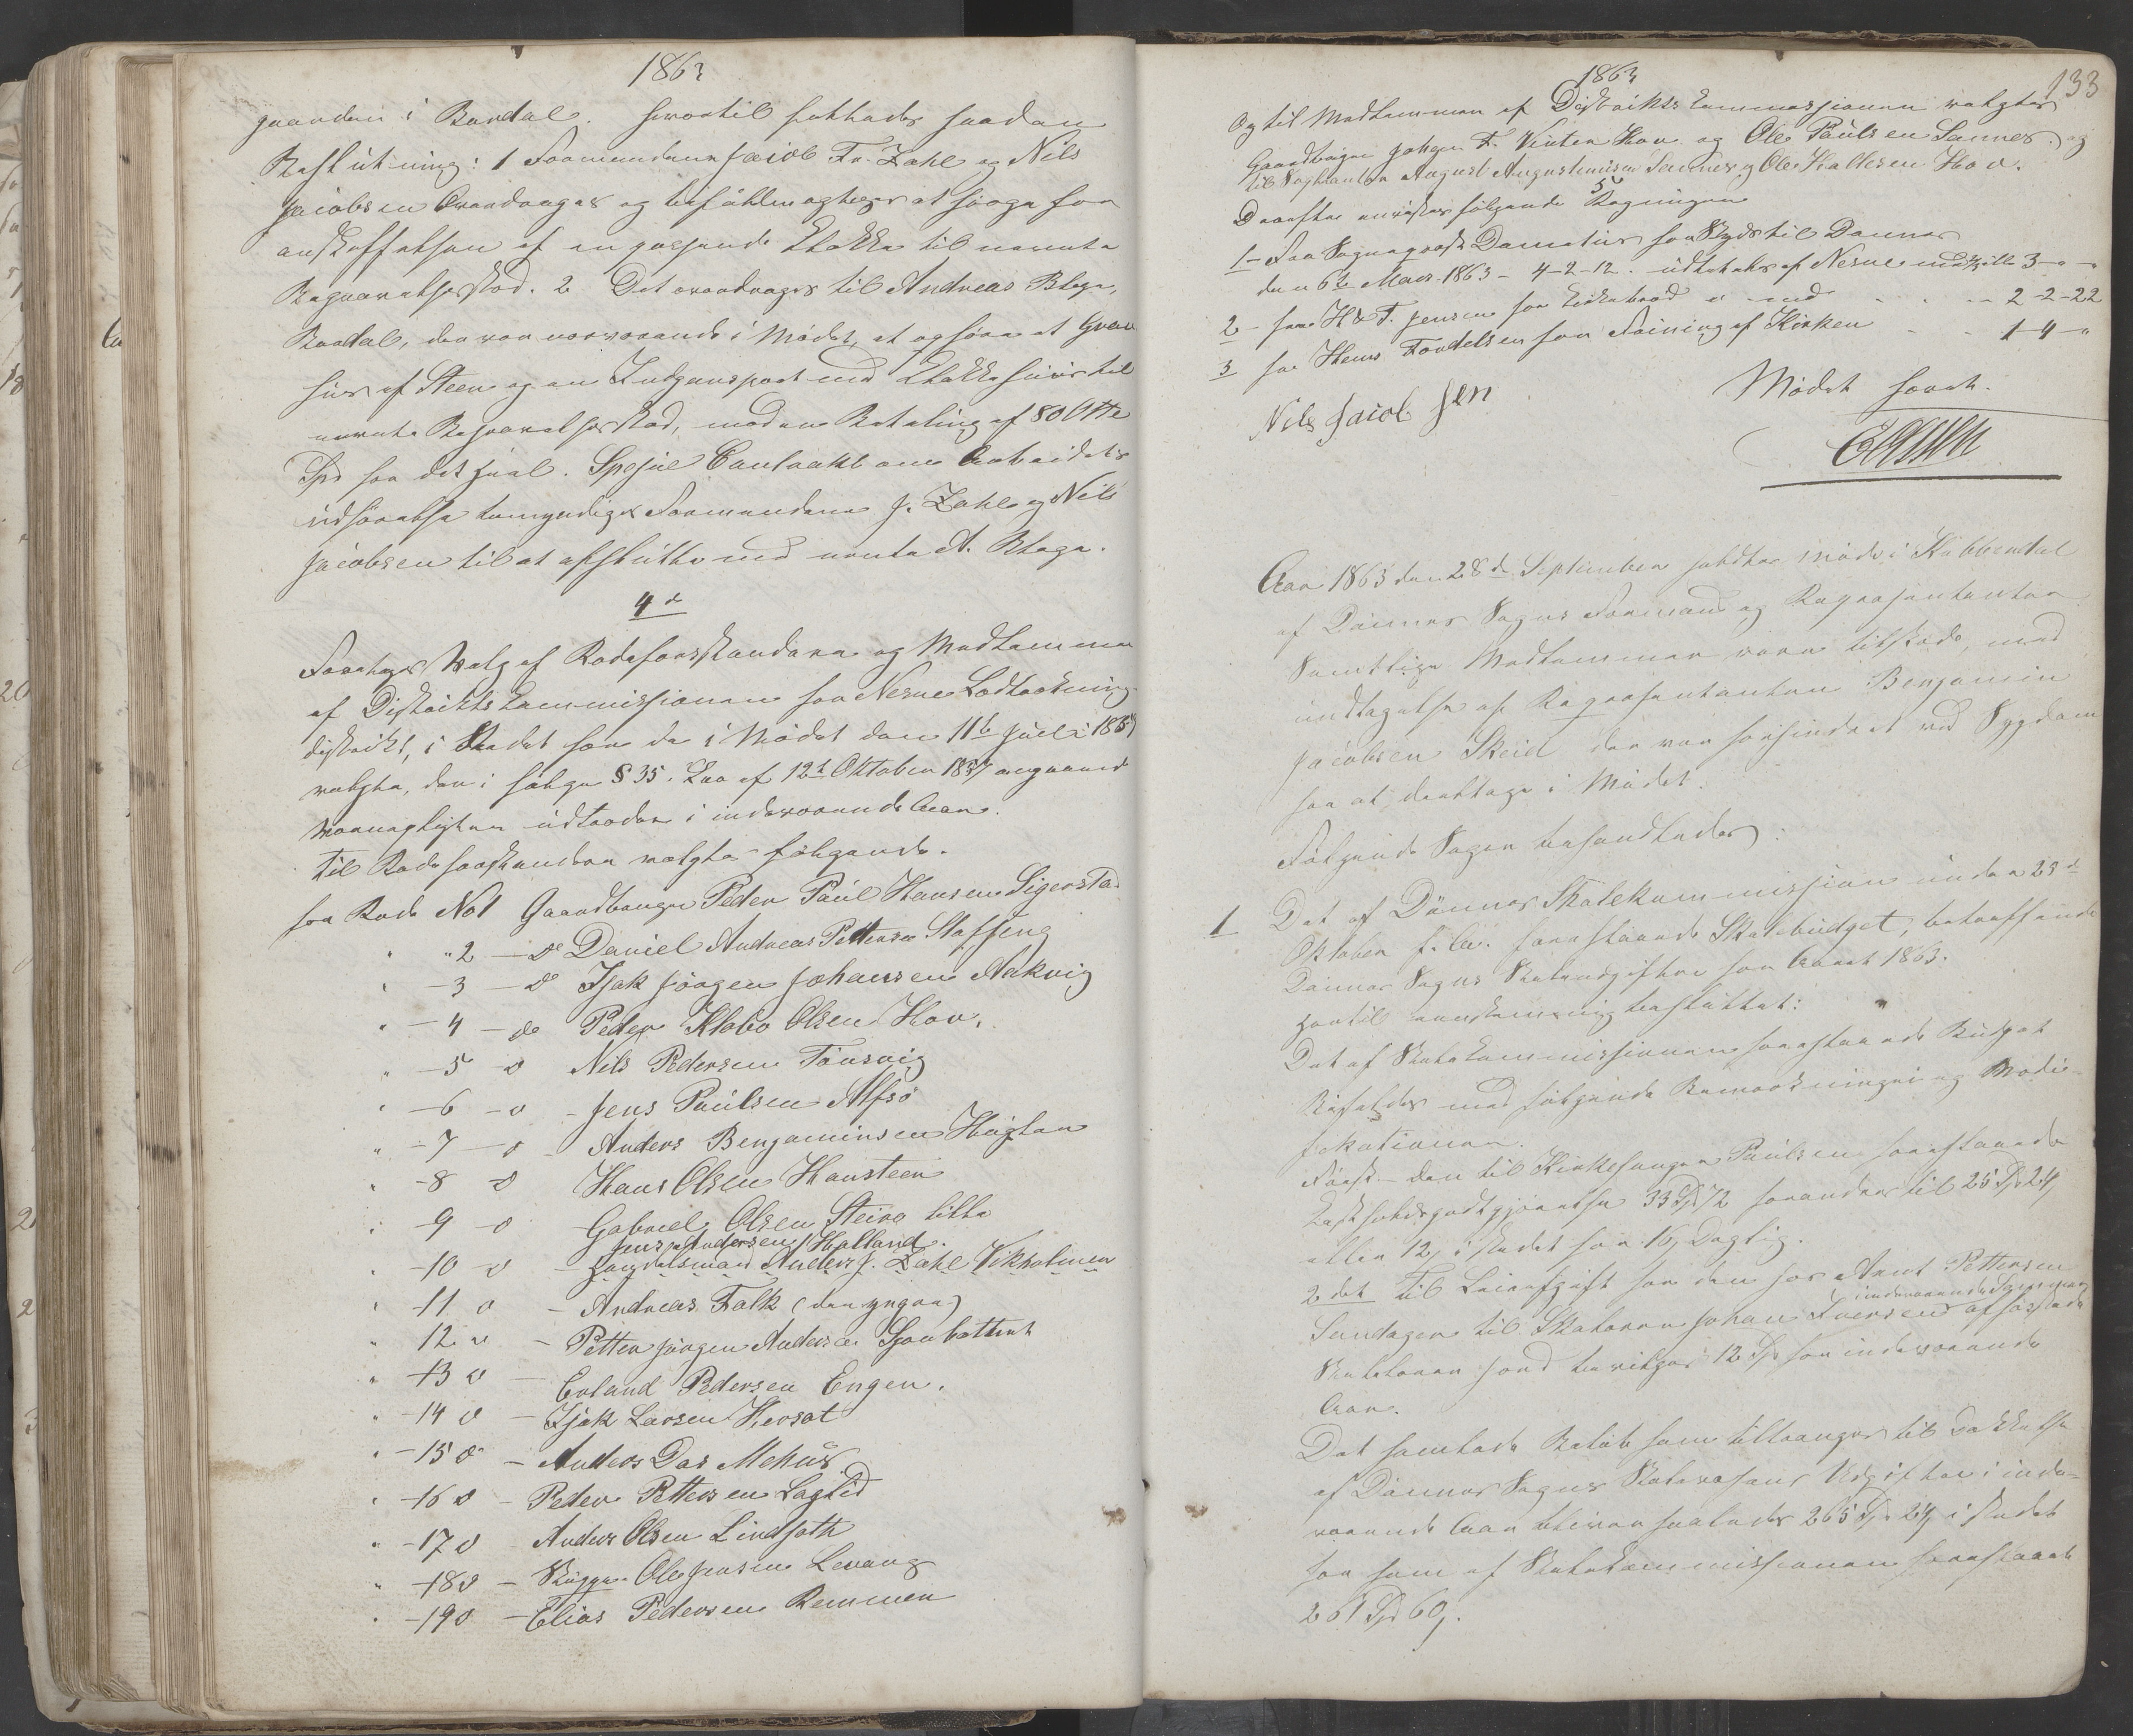 1863
gaarden i Bardal. hvortil fattedes saadan
Beslutning: 1 Formændene Jacob Fr. Zahl og Nils
Jacobsen overdrages og befuldmægtiges at sørge for
anskaffelsen af en passende Klokke til nævnte
Begravelsessted. 2 Det overdrages til Andreas Blage,
Bardal, der var nærværende i Mødet, at opføre et
huus af Steen og en Indgangsport med Klokkehuus til
nævnte Begravelsessted, mod en Betaling af 80 Otte
Spd for det Hele. Speciel Contrakt om Arbeidets
udførelse bemyndiges Formændene J. Zahl og Nils
Jacobsen til at afslutte med nævnte A. Blage.
4de
Foretoges Valg af Rodeforstandere og Medlemmer
af Distriktskommissionen for Nesne Lodtrækning
distrikt, i Stedet for de i Mødet den 11te Juli 1859
valgte, der i følge § 35. Lov af 12te Oktober 1857 angaaende
Værnepligten udtræder i indeværende Aar.
Til Rodeforstandere valgtes følgende.
for Rode No 1 Gaardbruger Peder Paul Hansen Sigerstad
" " 2 - do Daniel Andreas Pettersen Staffeng
" - 3 - do Isak Jørgen Johansen Nakvig
" - 4 - do Peder Klabo Olsen Hov.
" - 5 - do Nils Pedersen Tønsvig
" - 6 - do - Jens Paulsen Alfsø
" - 7 - do - Anders Benjaminsen Høgtun
" - 8 do Hans Olsen Hansteen
" - 9 - do - Gabriel Olsen Steiro lille
Jens Andersen Halland.
" - 10 - do - Handelsmand Anders J. Zahl Vikholmen
" - 11 do - Andreas Falk (den yngre)
" 12 do - Petter Jørgen Andersen Sjonbotten
" - 13 do - Erland Pedersen Engen.
" - 14 do - Isak Larsen Hersat
" - 15 do - Anders Das Mehus
" - 16 do - Peder Pettersen Lagtid
" - 17 do Anders Olsen Lindseth
" - 18 do - Ole Jensen Levang
" - 19 do - Elias Pedersen Remmen
1863
133
Og til Medlemmer af Distriktskommissionen valgtes
Gaardbruger Johan F. Hov og Ole Paulsen Sannes. og
til Suppleanter August Augustinusen Sannes og Ole Hov.
Derefter anvistes følgende Regninger
1 - Fra Sogneprest Dametius for Skyds til Dønnes
den 6te Mars 1863 - 4-2-12. udbetales af Nesne med 3 - " - "
2 - fra H & F. Jensen for Kirkebrød med - - - 2-2-22
3 fra Hans Tordelsen for Foining af Kirken - - 1-4-"
Nils Jacobsen
Mødet hævet.
Aar 1863 den 28de September holdtes møde i Kobberdal
af Dønnes Sogns Formænd og Repræsentanter
Samtlige Medlemmer vare tilstede, med
undtagelse af Repræsentanten Benjamin
Jacobsen Skeid der var forhindret ved Sygdom
for at deeltage i Mødet.
Følgende Sager behandledes:
1 Det af Dønnes Skolekommission under 23de
Oktober f. A. foreslaaede Skolebudget, betræffende
Dønnes Sogns Skoleudgifter for Aaret 1863.
Hertil eenstemmig besluttet:
Det af Skolekommissionen foreslaaede Budget
bifaldes med følgende Bemærkninger og Modi-
fikationer.
Først - Den til Kirkesanger Paulsen foreslaaede
Kostholdsgodtgjørelse 33 Spd 72 forandres til 25 Spd 24 s
eller 12 s i stedet for 16 s Daglig.
2det Til Leieafgift for den hos Arnt Pettersen
indeværende Sommer
Sundager til Skolelærer Johan Iversens afføstede
Skolelærer Jord bevilges 12 Spd for indeværende
Aar.
Det samlede Beløb som tiltrænges til Dækkelse
af Dønnes Sogns Skolevæsens Udgifter i inde-
værende Aar bliver saaledes 265 Spd 24 s i stedet
for som af Skolekommissionen foreslaaet
261 Spd 60 s.